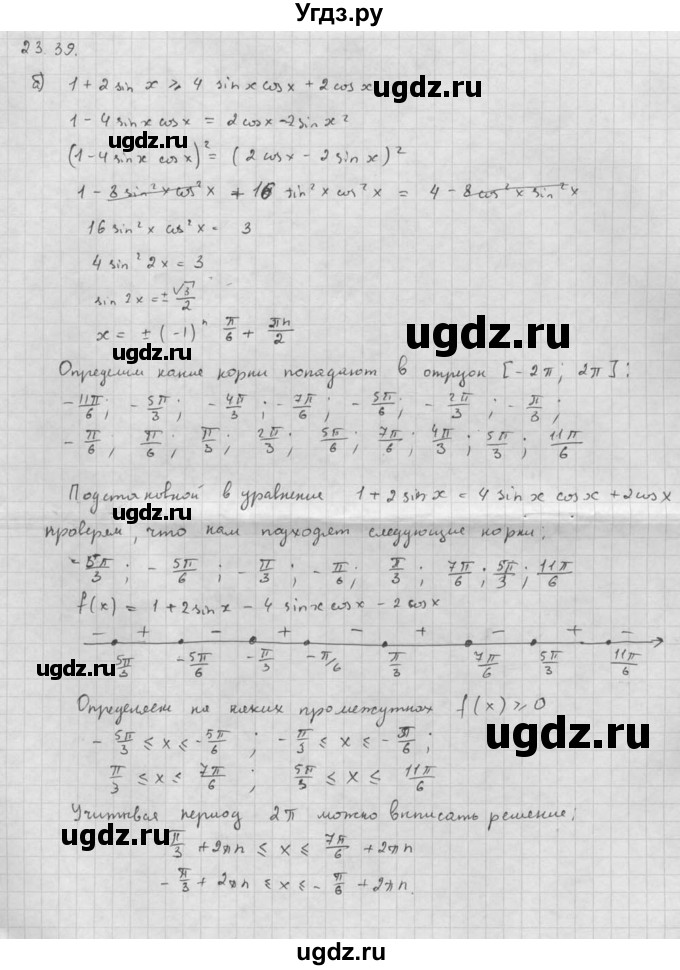 Угдз.ру
23.39.
б) 1 + 2 sin x ⩾ 4 sin x cos x + 2 cos x
ugdz.ru
1 - 4 sin x cos x = 2 cos x - 2 sin x ²
ugdz.ru
(1 - 4 sin x cos x)² = (2 cos x - 2 sin x)²
1 - 8 sin² x cos² x + 16 sin² x cos² x = 4 - 8 cos² x sin² x
16 sin² x cos² x = 3
4 sin² 2x = 3
sin 2x = ± √3/2
x = ± (-1)ⁿ π/6 + πn/2
ugdz.ru
ugdz.ru
Определим какие корни попадают в отрезок [-2π; 2π]:
-11π/6; -5π/3; -4π/3; -7π/6; -5π/6; -2π/3; -π/3;
-π/6; π/6; π/3; 2π/3; 5π/6; 7π/6; 4π/3; 5π/3; 11π/6
Подстановкой в уравнение 1 + 2 sin x = 4 sin x cos x + 2 cos x
проверем, что нам подходят следующие корни:
-5π/3; -5π/6; -π/3; -π/6; π/3; 7π/6; 5π/3; 11π/6
f(x) = 1 + 2 sin x - 4 sin x cos x - 2 cos x
- + - + - + - + -
-5π/3 -5π/6 -π/3 -π/6 π/3 7π/6 5π/3 11π/6
ugdz.ru
Определяем на каких промежутках f(x) ⩾ 0
ugdz.ru
-5π/3 ⩽ x ⩽ -5π/6; -π/3 ⩽ x ⩽ -π/6;
π/3 ⩽ x ⩽ 7π/6; 5π/3 ⩽ x ⩽ 11π/6
ugdz.ru
Учитывая период 2π можно выписать решение:
π/3 + 2πn ⩽ x ⩽ 7π/6 + 2πn
-π/3 + 2πn ⩽ x ⩽ -π/6 + 2πn.
ugdz.ru
ugdz.ru